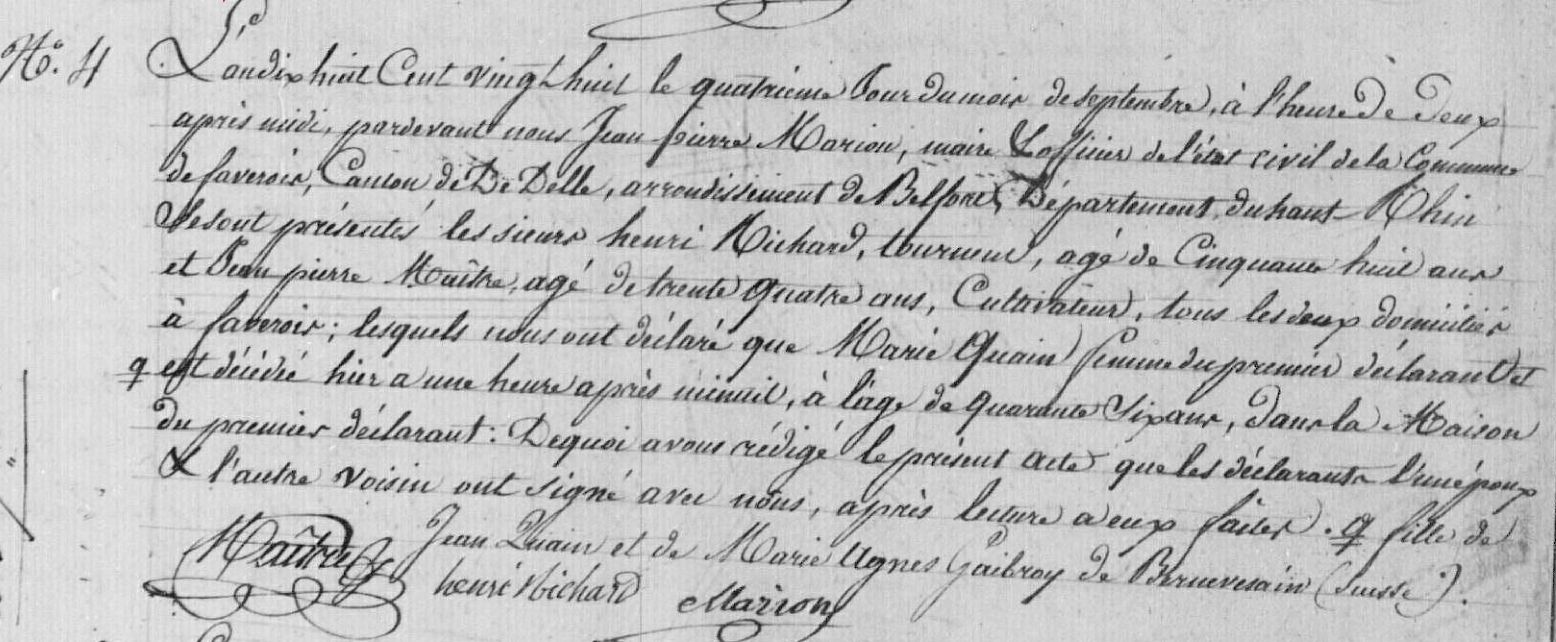 N.o 4 L'an dix huit Cent vingt huit le quatrieme Jour du mois de septembre, à l'heure De Deux
après midi, pardevant nous Jean pierre Marion, maire & officier de l'état civil de la Commune
de faverois, Canton de De Delle, arrondissement de Belfort, Département du haut Rhin
Se sont présentés les sieurs henri Richard, tourneur, agé de Cinquante huit ans
et Jean pierre Maître, agé de trente quatre ans, Cultivateur, tous les deux domiciliés
à faverois; lesquels nous ont déclaré que Marie Quain femme du premier déclarant et
q est décédé hier a une heure après minuit, à l'age de quarante Six ans, dans la Maison
du premier déclarant: De quoi avons rédigé le présent acte que les déclarants l'un époux
& l'autre voisin ont signé avec nous, après lecture a eux faites. q fille de
Jean Quain et de Marie Agnes Gaibray de Bernevesain (Suisse).
Maître henri Richard Marion